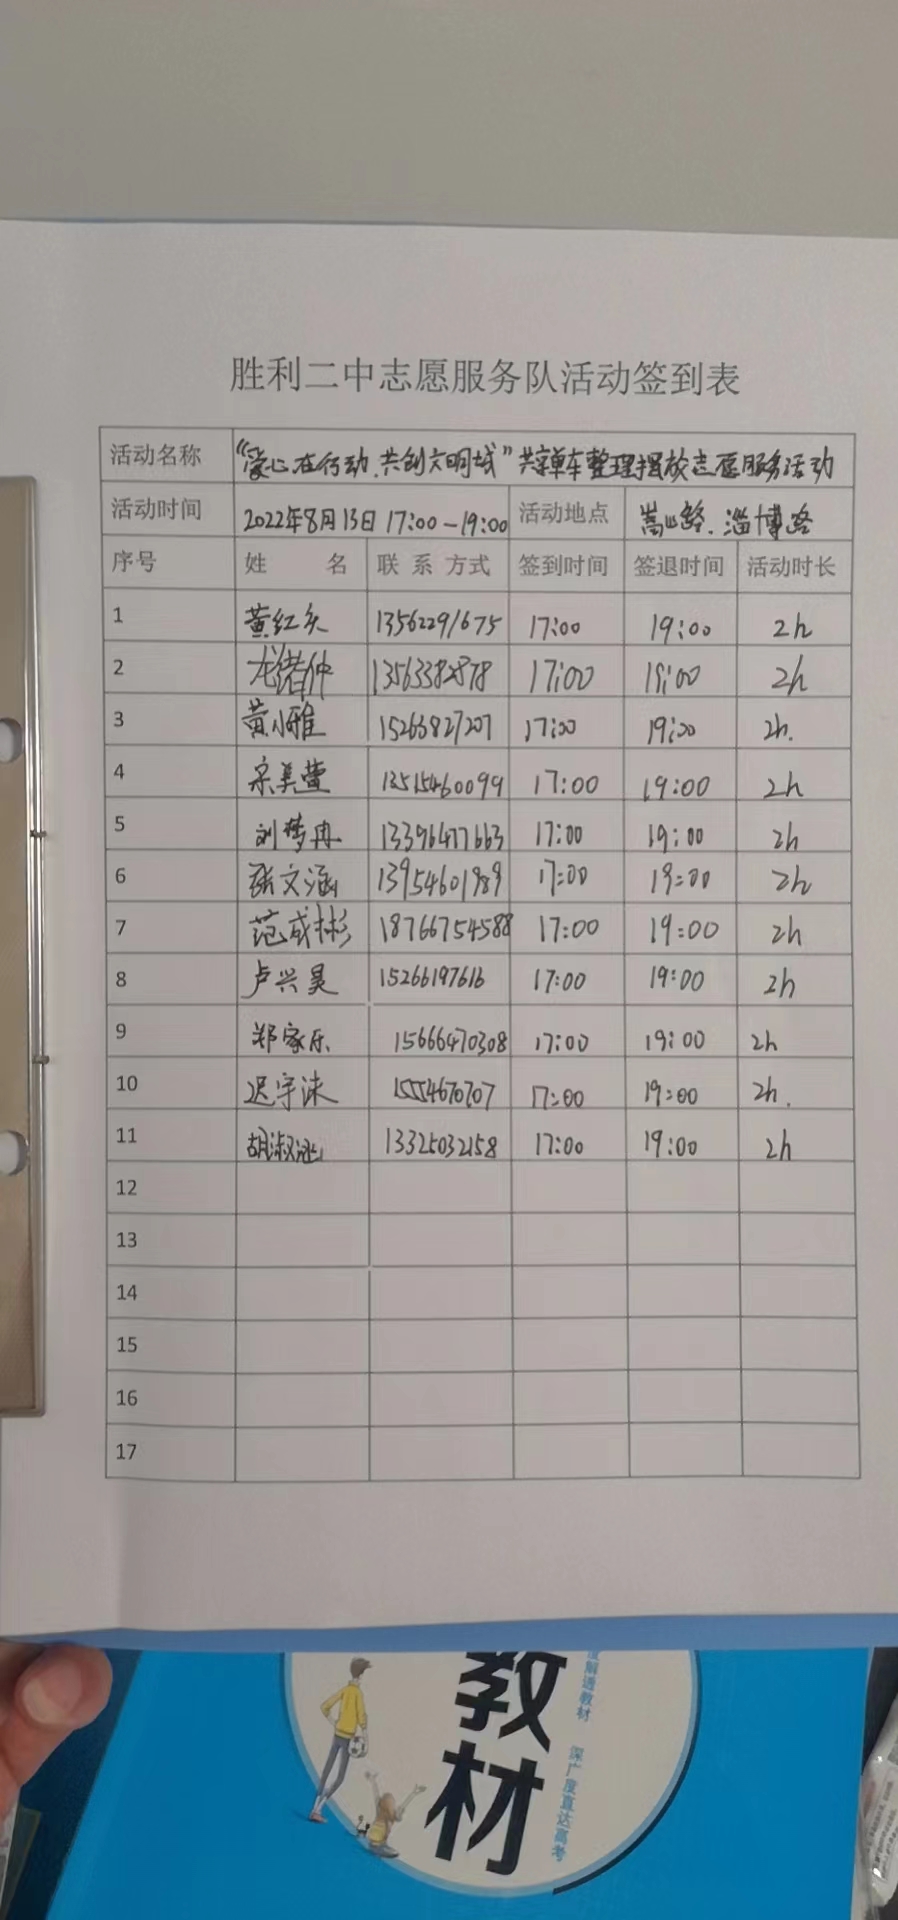 胜利二中志愿服务队活动签到表
活动名称 “爱心在行动.共创文明城”共享单车整理摆放志愿服务活动
活动时间 2022年8月13日 17:00-19:00 活动地点 嵩山路.淄博路
序号 姓 名 联 系 方式 签到时间 签退时间 活动时长
1 黄红矢 13562291675 17:00 19:00 2h
2 龙绪仲 13563382878 17:00 19:00 2h
3 黄小雅 15263827207 17:00 19:00 2h.
4 宋美萱 13515460099 17:00 19:00 2h
5 刘梦冉 13396477663 17:00 19:00 2h
6 张文涵 13954601989 17:00 19:00 2h
7 范成彬 18766754588 17:00 19:00 2h
8 卢兴昊 15266197616 17:00 19:00 2h
9 郑家乐 15666470308 17:00 19:00 2h
10 迟宇涞 15554670707 17:00 19:00 2h.
11 胡淑涵 13325032158 17:00 19:00 2h
12
13
14
15
16
17
教材
度解透教材 深广度直达高考